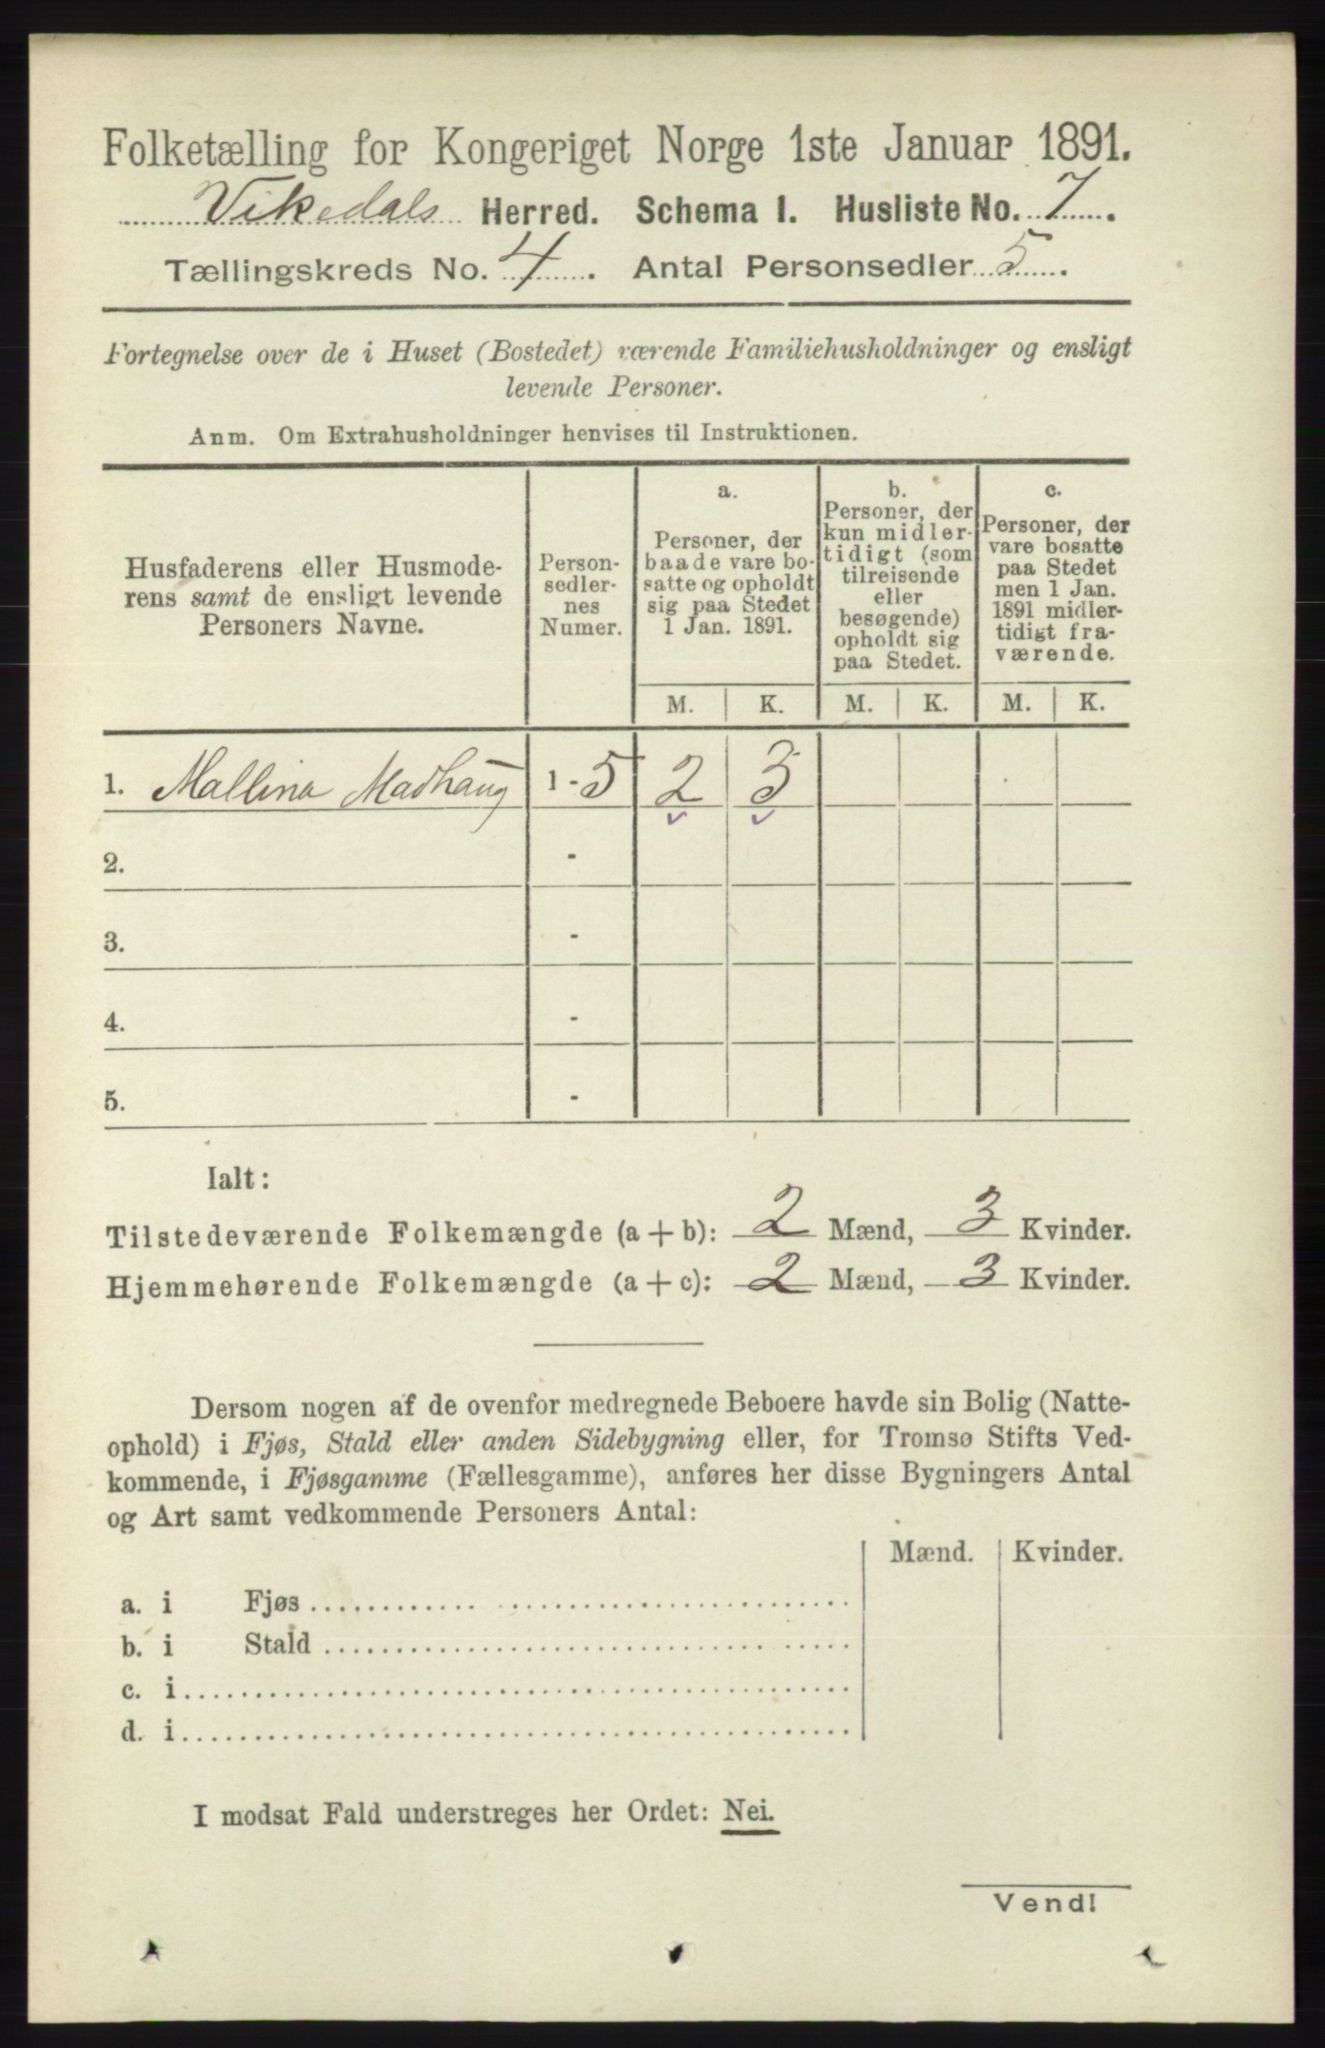 Folketælling for Kongeriget Norge 1ste Januar 1891.
Vikedals Herred. Schema I. Husliste No. 7.
Tællingskreds No. 4. Antal Personsedler 5.
Fortegnelse over de i Huset (Bostedet) værende Familiehusholdninger og ensligt
levende Personer.
Anm. Om Extrahusholdninger henvises til Instruktionen.
Husfaderens eller Husmode-
rens samt de ensligt levende
Personers Navne.
Person-
sedler-
nes
Numer.
a.
Personer, der
baade vare bo-
satte og opholdt
sig paa Stedet
1 Jan. 1891.
b.
Personer, der
kun midler-
tidigt (som
tilreisende
eller
besøgende)
opholdt sig
paa Stedet.
c.
Personer, der
vare bosatte
paa Stedet
men 1 Jan.
1891 midler-
tidigt fra-
værende.
M. K. M. K. M. K.
1. Mallina Madhaug 1-5 2 3
2. -
3. -
4. -
5. -
Ialt:
Tilstedeværende Folkemængde (a + b): 2 Mænd, 3 Kvinder.
Hjemmehørende Folkemængde (a + c): 2 Mænd, 3 Kvinder.
Dersom nogen af de ovenfor medregnede Beboere havde sin Bolig (Natte-
ophold) i Fjøs, Stald eller anden Sidebygning eller, for Tromsø Stifts Ved-
kommende, i Fjøsgamme (Fællesgamme), anføres her disse Bygningers Antal
og Art samt vedkommende Personers Antal:
Mænd. Kvinder.
a. i Fjøs
b. i Stald
c. i
d. i
I modsat Fald understreges her Ordet: Nei.
Vend!